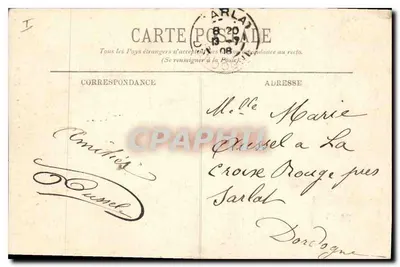 I
CARTE POSTALE
SARLAT
8-20
13-7
08
DORDOGNE
Tous les Pays étrangers n'acceptent pas la Correspondance au recto.
(Se renseigner à la Poste)
CORRESPONDANCE
ADRESSE
Melle Marie
Aussel a La
Croix Rouge pres
Sarlat
Dordogne
Amitiés
Aussel
Delcampe